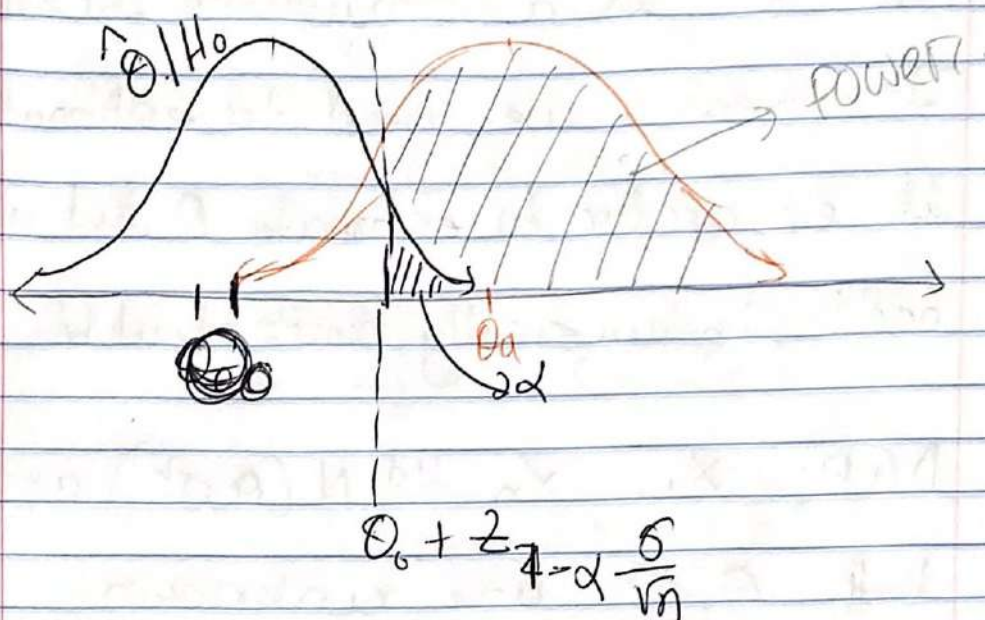 θ̂|H₀
power
θa
θ₀
α
θ₀ + Z₁₋α σ/√n